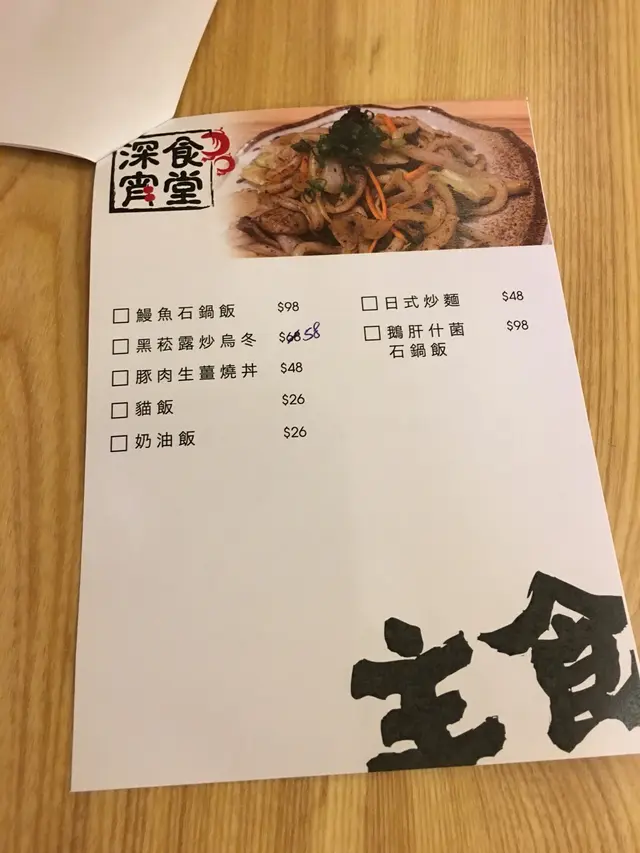 深宵食堂
鰻魚石鍋飯 $98
黑菘露炒烏冬 $68 58
豚肉生薑燒丼 $48
貓飯 $26
奶油飯 $26
日式炒麵 $48
鵝肝什菌 $98
石鍋飯
主食